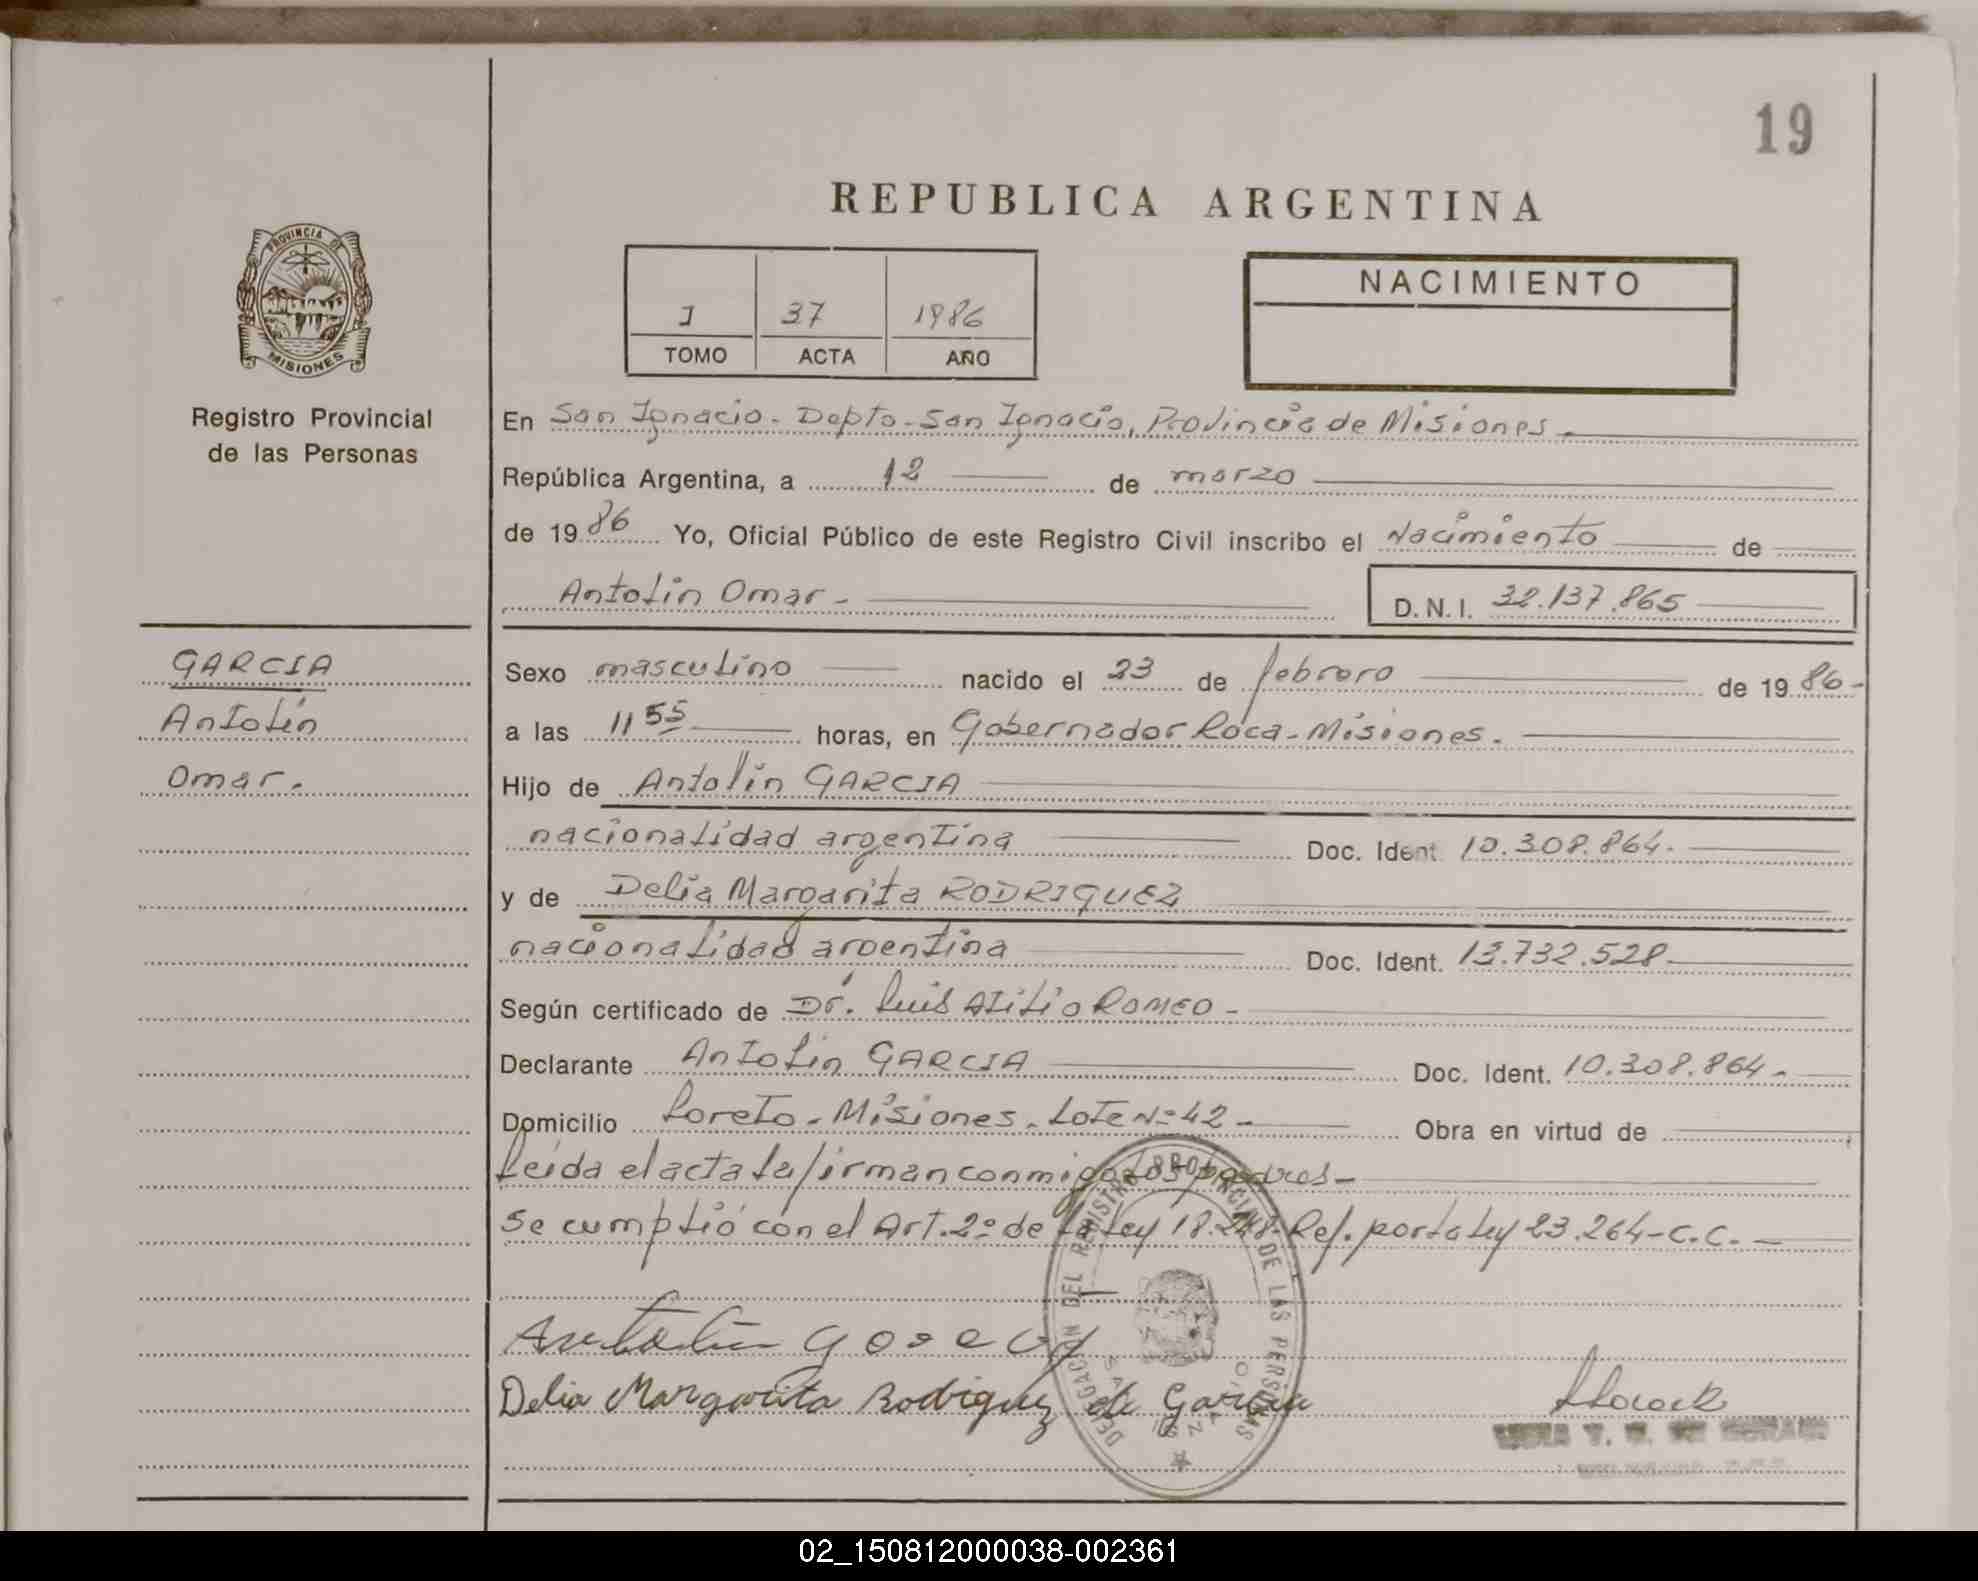 19
REPUBLICA ARGENTINA
PROVINCIA DE
MISIONES
Registro Provincial
de las Personas
I 37 1986
TOMO ACTA AÑO
NACIMIENTO
En San Ignacio - Depto - San Ignacio, Provincia de Misiones.
República Argentina, a 12 de marzo
de 1986 Yo, Oficial Público de este Registro Civil inscribo el Nacimiento de
Antolin Omar - D.N.I. 32.137.865
GARCIA
Antolín
Omar.
Sexo masculino nacido el 23 de febrero de 1986-
a las 11 55 horas, en Gobernador Roca - Misiones.
Hijo de Antolín GARCIA
nacionalidad argentina Doc. Ident. 10.308.864.
y de Delia Margarita RODRIGUEZ
nacionalidad argentina Doc. Ident. 13.732.528
Según certificado de Dr. Luis Atilio ROMEO -
Declarante Antolin GARCIA Doc. Ident. 10.308.864-
Domicilio Loreto - Misiones. Lote Nº 42 - Obra en virtud de
leída el acta la firman conmigo los padres-
Se cumplió con el Art. 2º de la Ley 18.248. Ref. por la Ley 23.264-C.C.-
Antolin Garcia
Delia Margarita Rodriguez de Garcia
DELEGACION DEL REGISTRO PROVINCIAL DE LAS PERSONAS
02_150812000038-002361